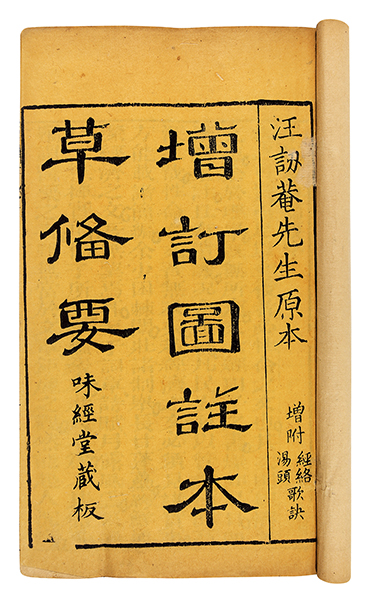 汪訒菴先生原本
增附
經絡歌訣
湯頭
增訂圖註本
草俻要
味經堂蔵板